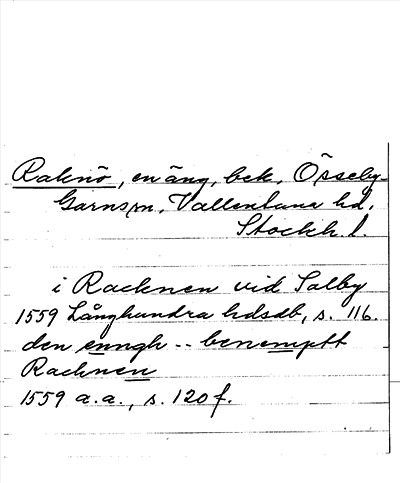 Raknö, en äng, bek., Össeby-
Garns sn, Vallentuna hd,
Stockh. l.
i Racknen vid Salby
1559 Långhundra hdsdb, s. 116.
den enngh -- benemptt
Racknen
1559 a.a., s. 120 f.